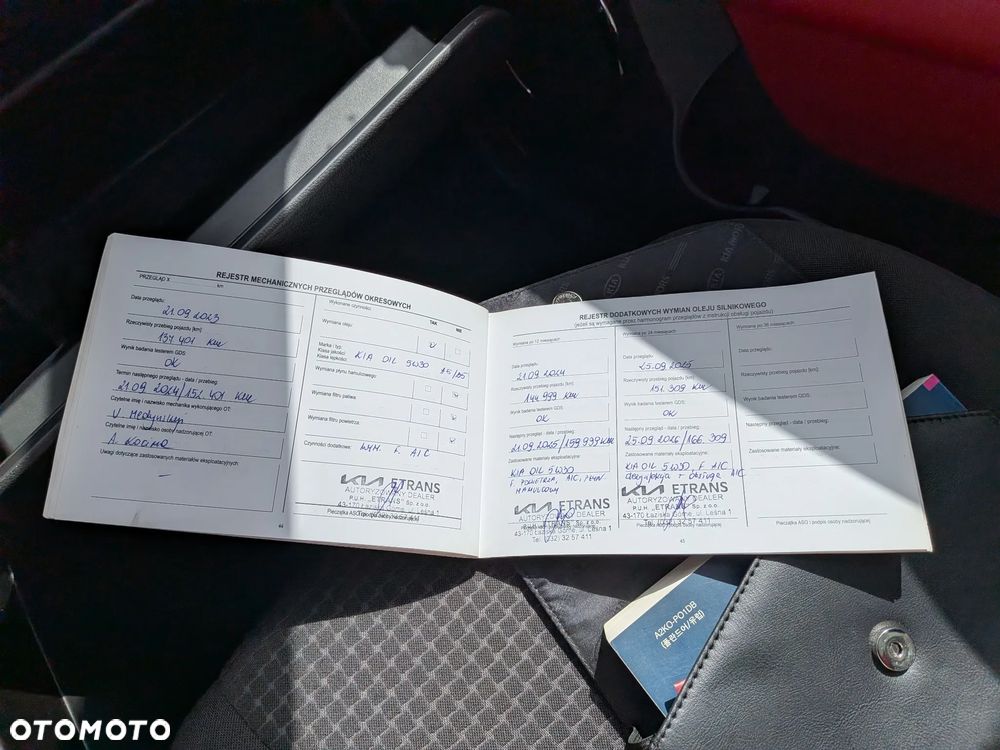 REJESTR MECHANICZNYCH PRZEGLĄDÓW OKRESOWYCH
PRZEGLĄD X
km
Data przeglądu:
21.09 2023
Rzeczywisty przebieg pojazdu [km]:
137 401 km
Wynik badania testerem GDS:
OK
Termin następnego przeglądu - data / przebieg:
21.09 2024/152 401 km
Czytelne imię i nazwisko mechanika wykonującego OT:
Czytelne imię i nazwisko osoby nadzorującej OT:
A.
Uwagi dotyczące zastosowanych materiałów eksploatacyjnych
-
44
Wykonane czynności:
TAK
NIE
Wymiana oleju:
Marka i typ:
Klasa jakości:
Klasa lepkości:
KIA OIL 5W30 A5/B5
Wymiana płynu hamulcowego:
Wymiana filtru paliwa:
Wymiana filtru powietrza:
Czynności dodatkowe:
WYM. F. A/C
KIA ETRANS
AUTORYZOWANY DEALER
P.U.H. „ETRANS" Sp. z o.o.
43-170 Łaziska Górne, ul. Leśna 1
Pieczątka ASO i podpis osoby nadzorującej
REJESTR DODATKOWYCH WYMIAN OLEJU SILNIKOWEGO
(jeżeli są wymagane przez harmonogram przeglądów z instrukcji obsługi pojazdu)
Wymiana po 12 miesiącach
Data przeglądu:
21.09 2024
Rzeczywisty przebieg pojazdu [km]:
144 999 km
Wynik badania testerem GDS:
OK
Następny przegląd - data / przebieg:
21.09 2025/159 999 km
Zastosowane materiały eksploatacyjne:
KIA OIL 5W30
F. POWIETRZA, A/C, PŁYN
HAMULCOWY
KIA ETRANS
AUTORYZOWANY DEALER
ETRANS Sp. z o.o.
43-170 Łaziska Górne, ul. Leśna 1
Tel. (232) 32 57 411
Wymiana po 24 miesiącach
Data przeglądu:
25.09 2025
Rzeczywisty przebieg pojazdu [km]:
151 309 km
Wynik badania testerem GDS:
OK
Następny przegląd - data / przebieg:
25.09 2026/166 309
Zastosowane materiały eksploatacyjne:
KIA OIL 5W30, F. A/C
dezynfekcja + obsługa A/C
KIA ETRANS
AUTORYZOWANY DEALER
P.U.H. „ETRANS" Sp. z o.o.
43-170 Łaziska Górne, ul. Leśna 1
Tel. (232) 32 57 411
Wymiana po 36 miesiącach
Data przeglądu:
Rzeczywisty przebieg pojazdu [km]:
Wynik badania testerem GDS:
Następny przegląd - data / przebieg:
Zastosowane materiały eksploatacyjne:
Pieczątka ASO i podpis osoby nadzorującej
45
KIA
A2KO-PO1DB
(폴란드어/유럽)
OTOMOTO